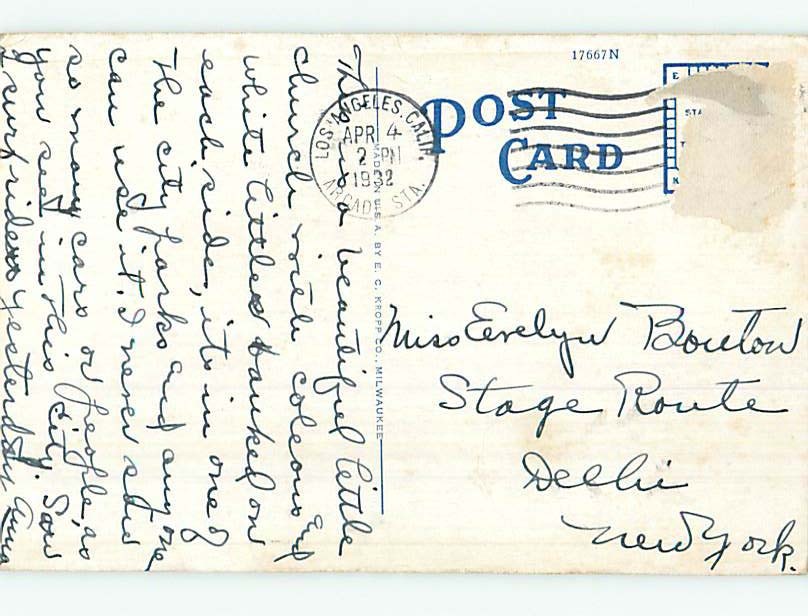 17667N
POST
CARD
LOS ANGELES, CALIF.
APR 4
2 PM
1932
ARCADE STA.
MADE IN U.S.A. BY E. C. KROPP CO., MILWAUKEE
This is a beautiful little
church with coleous and
white lillies banked on
each side, its in one of
the city parks and any one
can use it. I never saw
so many cars or people, as
you see in this city. Saw
surf riders yesterday. Anna
Miss Evelyn Bouton
Stage Route
Delhi
New York.